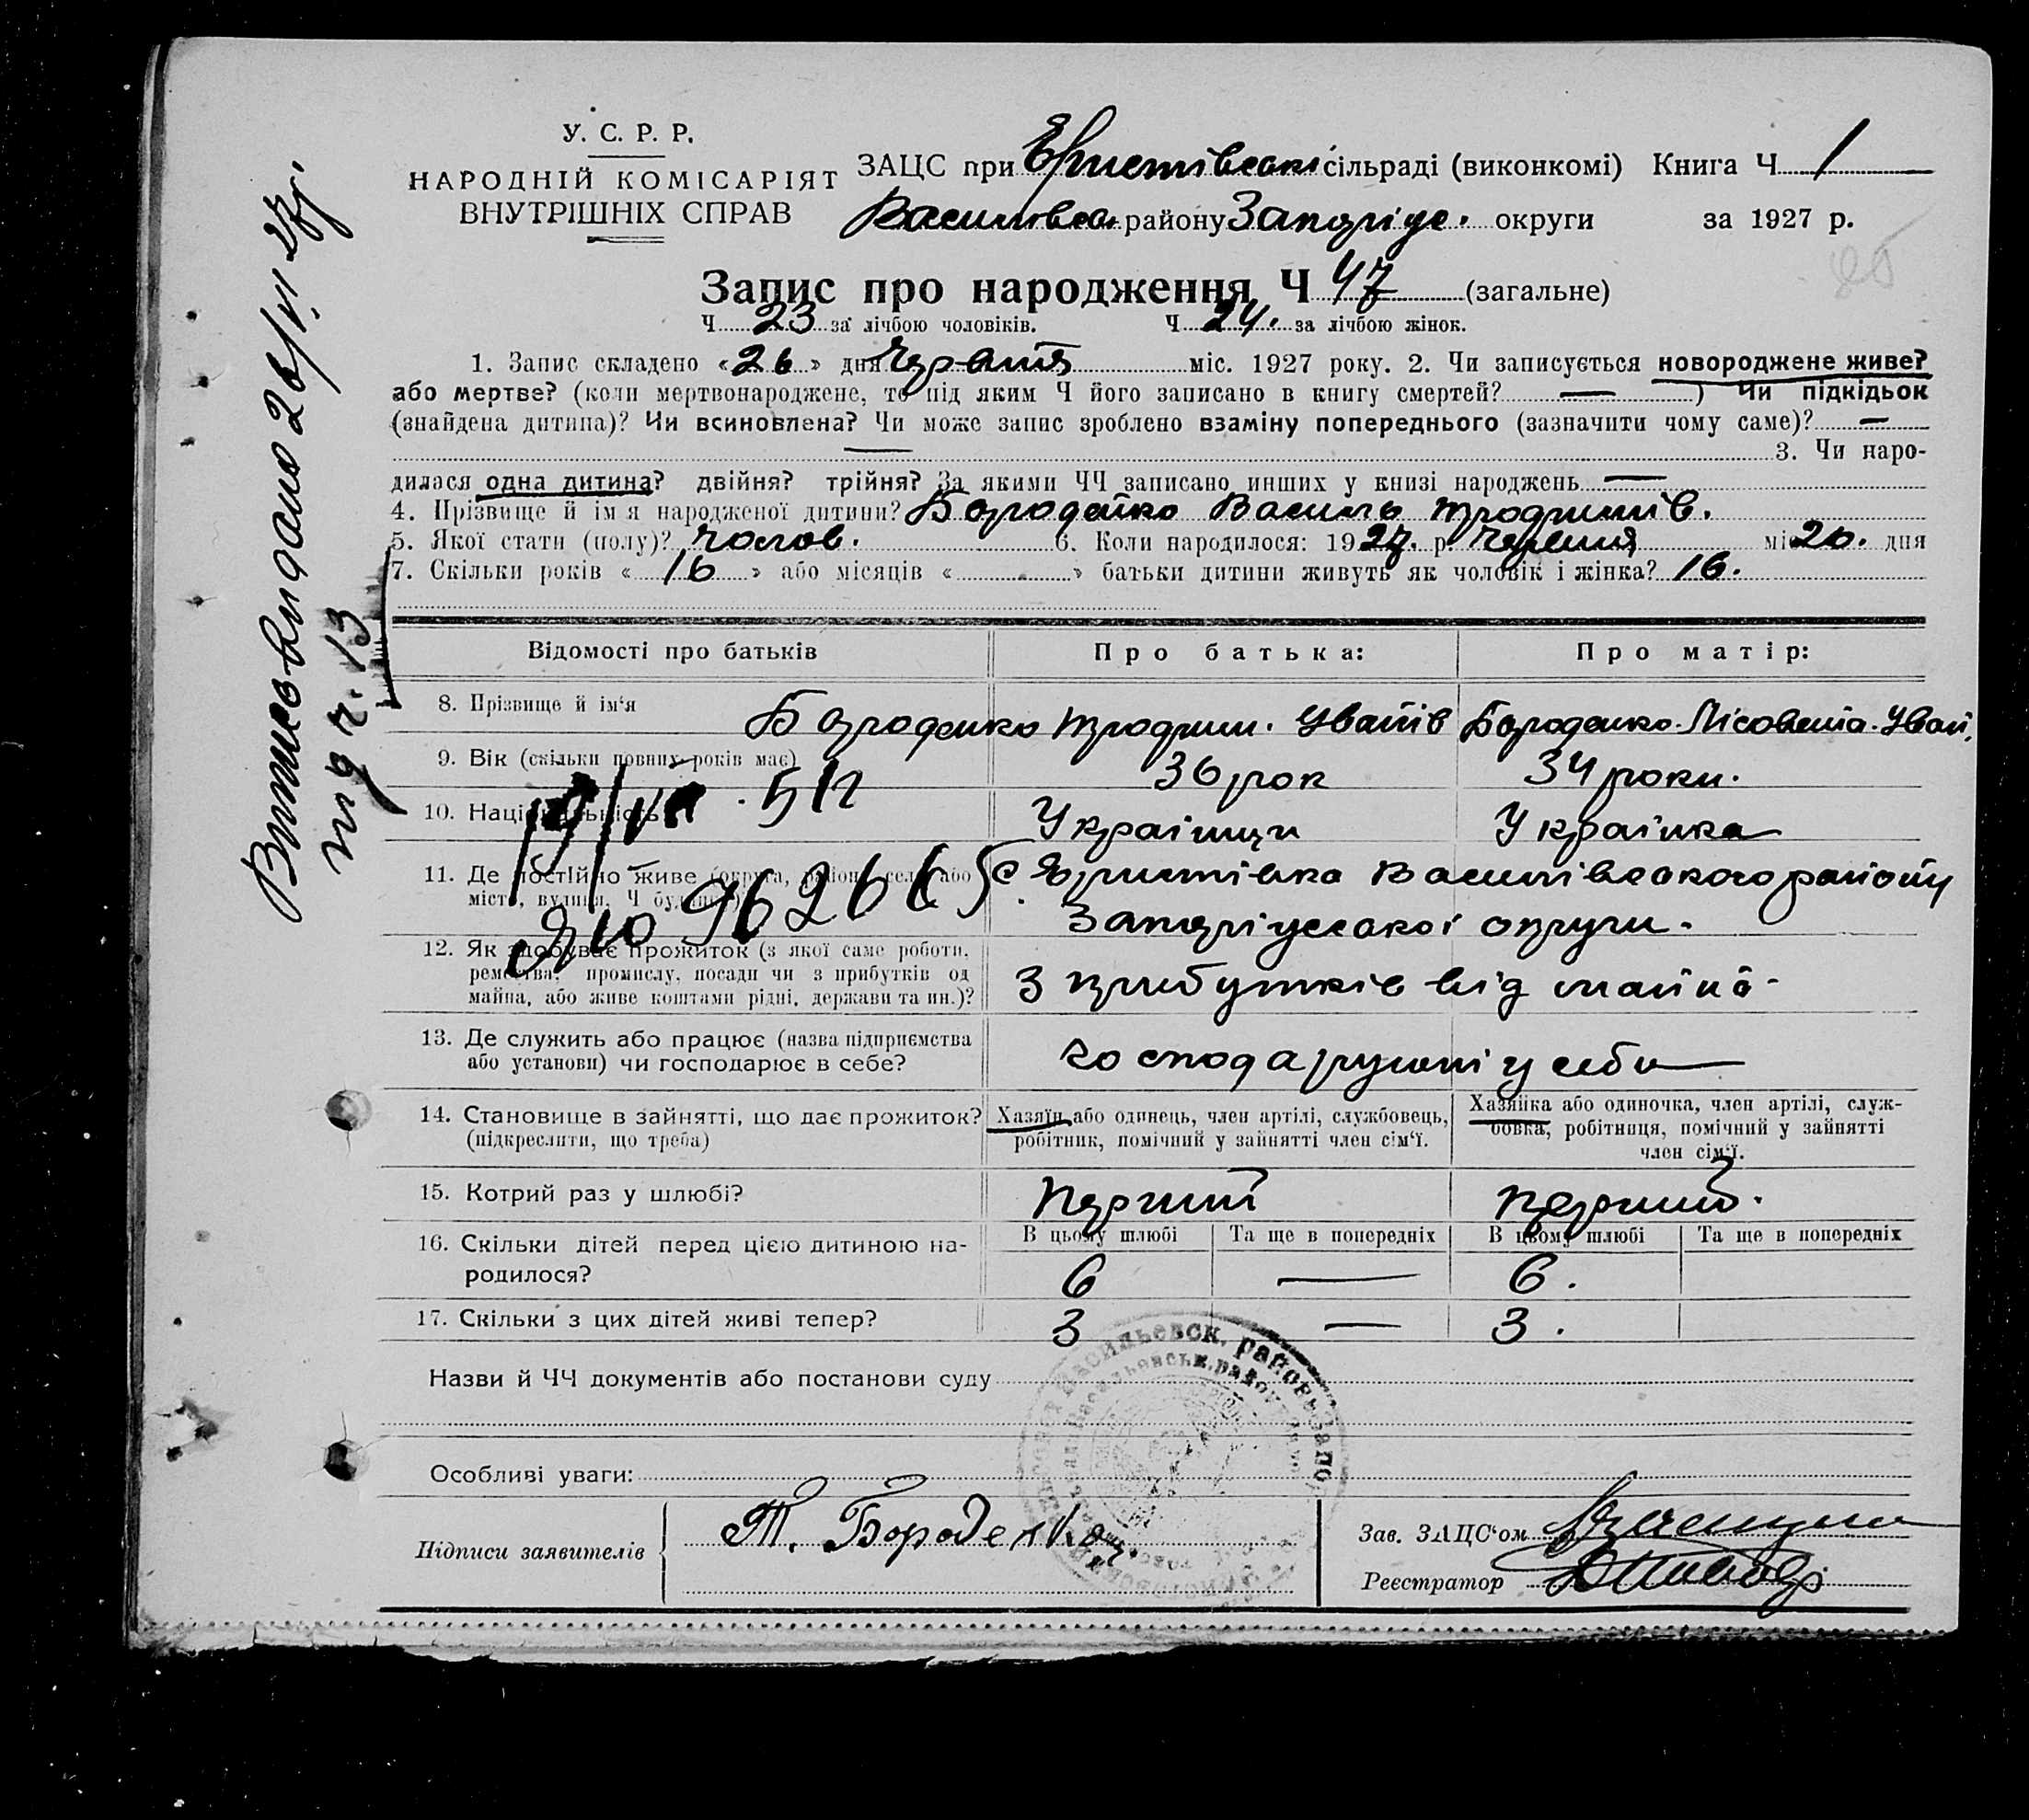 У. С. Р. Р.
НАРОДНІЙ КОМІСАРІЯТ
ВНУТРІШНІХ СПРАВ
ЗАЦС при Єристівські сільраді (виконкомі) Книга Ч 1
Василівськ району Запоріце. округи за 1927 р.
Запис про народження Ч 47 (загальне)
Ч 23 за лічбою чоловіків. Ч 24. за лічбою жінок.
1. Запис складено «26» дня червня міс. 1927 року. 2. Чи записується новороджене живе?
або мертве? (коли мертвонароджене, то під яким Ч його записано в книгу смертей? — ) Чи підкідьок
(знайдена дитина)? Чи всиновлена? Чи може запис зроблено взаміну попереднього (зазначити чому саме)? —
— 3. Чи наро-
дилася одна дитина? двійня? трійня? За якими ЧЧ записано инших у книзі народжень —
4. Прізвище й ім'я народженої дитини? Бороденко Василь Трофимів.
5. Якої стати (полу)? чолов. 6. Коли народилося: 1927. р. червня міс 20. дня
7. Скільки років «16» або місяців « » батьки дитини живуть як чоловік і жінка? 16.
Відомості про батьків
Про батька:
Про матір:
8. Прізвище й ім'я
Бороденко Трофим. Іванів
Бороденко Лісовета Іван.
9. Вік (скільки повних років має)
36 рок
34 роки.
10. Національність
Українци
Українка
11. Де постійно живе (округа, район, село або
місто, вулиця, Ч будинку)
с. Єристівка Василівського району
Запоріцеської округи.
12. Як здобуває прожиток (з якої саме роботи,
ремества, промислу, посади чи з прибутків од
майна, або живе коштами рідні, держави та ин.)?
З прибутків від майна
13. Де служить або працює (назва підприємства
або установи) чи господарює в себе?
господарують у себе
14. Становище в зайнятті, що дає прожиток?
(підкреслити, що треба)
Хазяїн або одинець, член артілі, службовець,
робітник, помічний у зайнятті член сім'ї.
Хазяйка або одиночка, член артілі, служ-
бовка, робітниця, помічний у зайнятті
член сім'ї.
15. Котрий раз у шлюбі?
перший
перший.
16. Скільки дітей перед цією дитиною на-
родилося?
В цьому шлюбі Та ще в попередніх В цьому шлюбі Та ще в попередніх
6 — 6.
17. Скільки з цих дітей живі тепер?
3 — 3.
Назви й ЧЧ документів або постанови суду
Особливі уваги:
Підписи заявителів
Т. Бороденко
Зав. ЗАЦС'ом
Реєстратор
Витисьвидано 26/VI 27р.
під ч. 13
19/VII 51г
962665
Васильевск. район